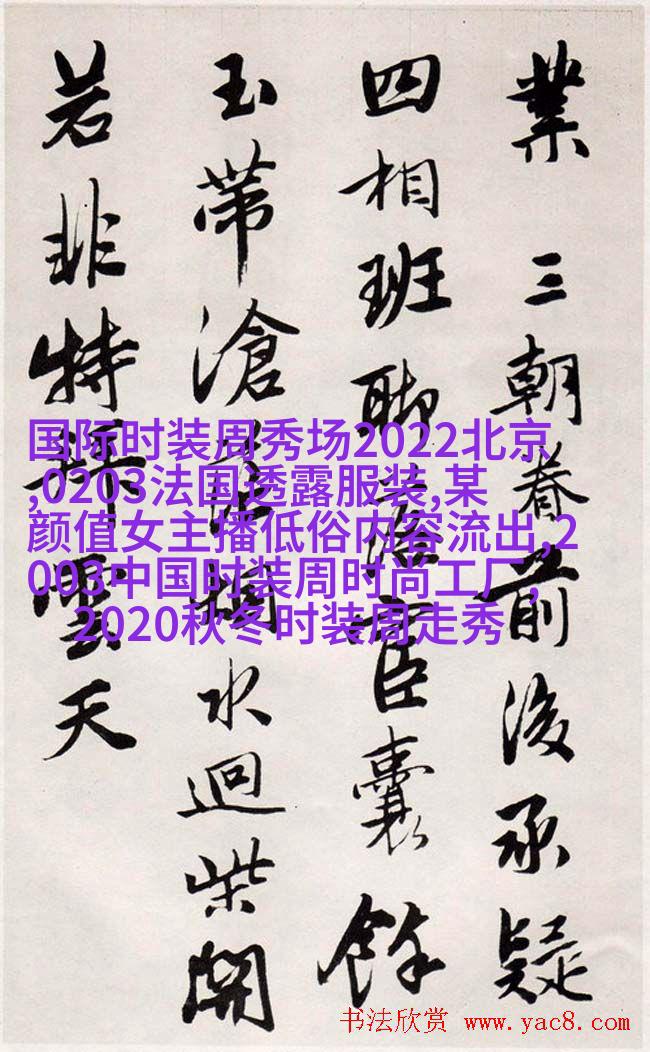 業 三朝眷前後承疑
四相班聯宦囊餘
玉帶滄水迴柴
若非特雲天
国际时装周秀场2022北京
,0203法国透露服装,某
颜值女主播低俗内容流出,2
003中国时装周时尚工厂,
2020秋冬时装周走秀
书法欣赏 www.yac8.com